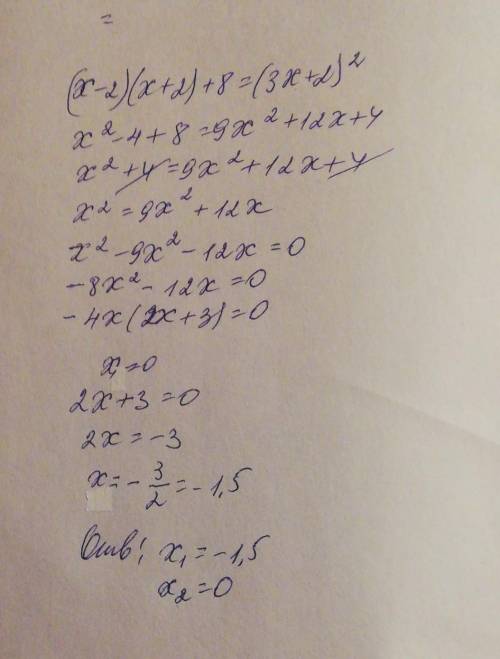 =
(x-2)(x+2)+8=(3x+2)²
x²-4+8=9x²+12x+4
x²+4=9x²+12x+4
x²=9x²+12x
x²-9x²-12x=0
-8x²-12x=0
-4x(2x+3)=0
x₁=0
2x+3=0
2x=-3
x=-3/2=-1,5
Отв: x₁=-1,5
x₂=0